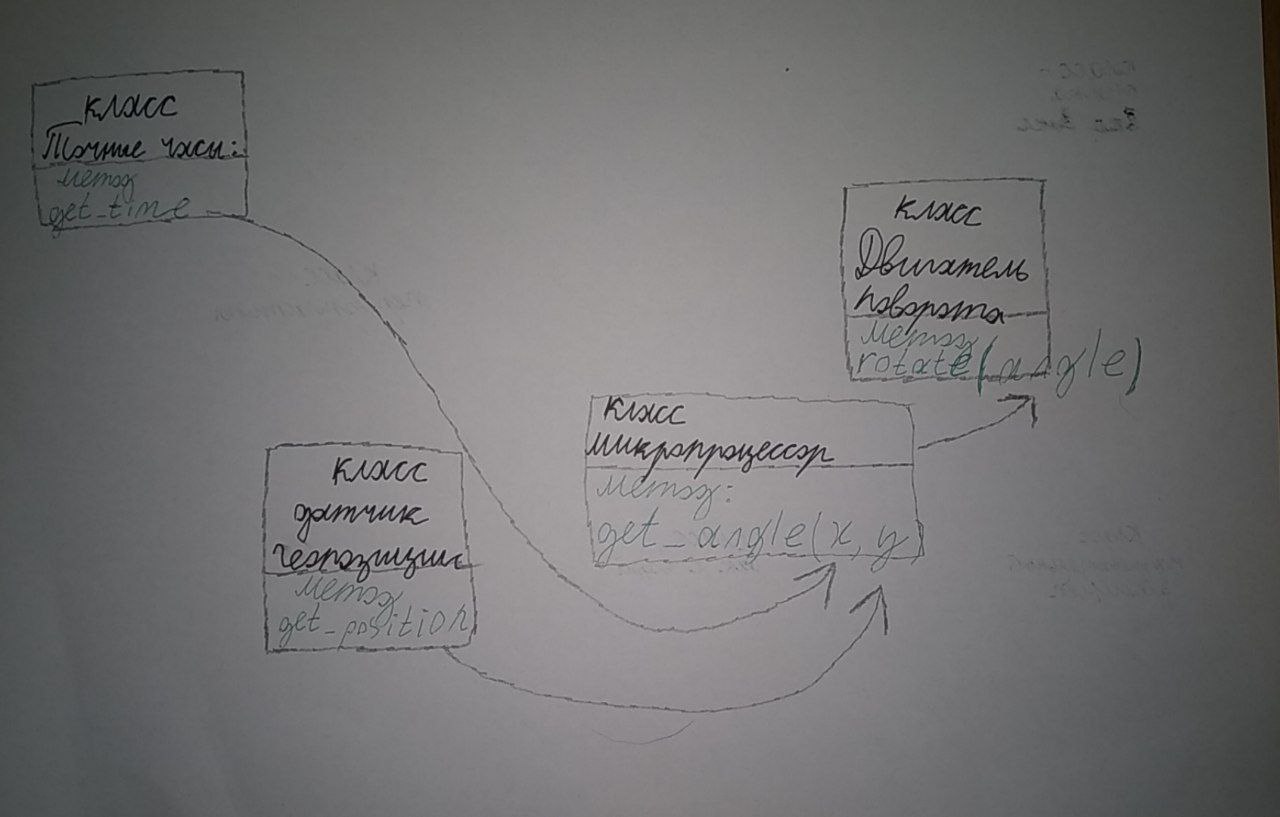 класс
Точные часы:
метод
get_time
класс
Двигатель
поворота
метод
rotate(angle)
класс
микропроцессор
метод:
get_angle(x, y)
класс
датчик
геопозиции
метод
get_position